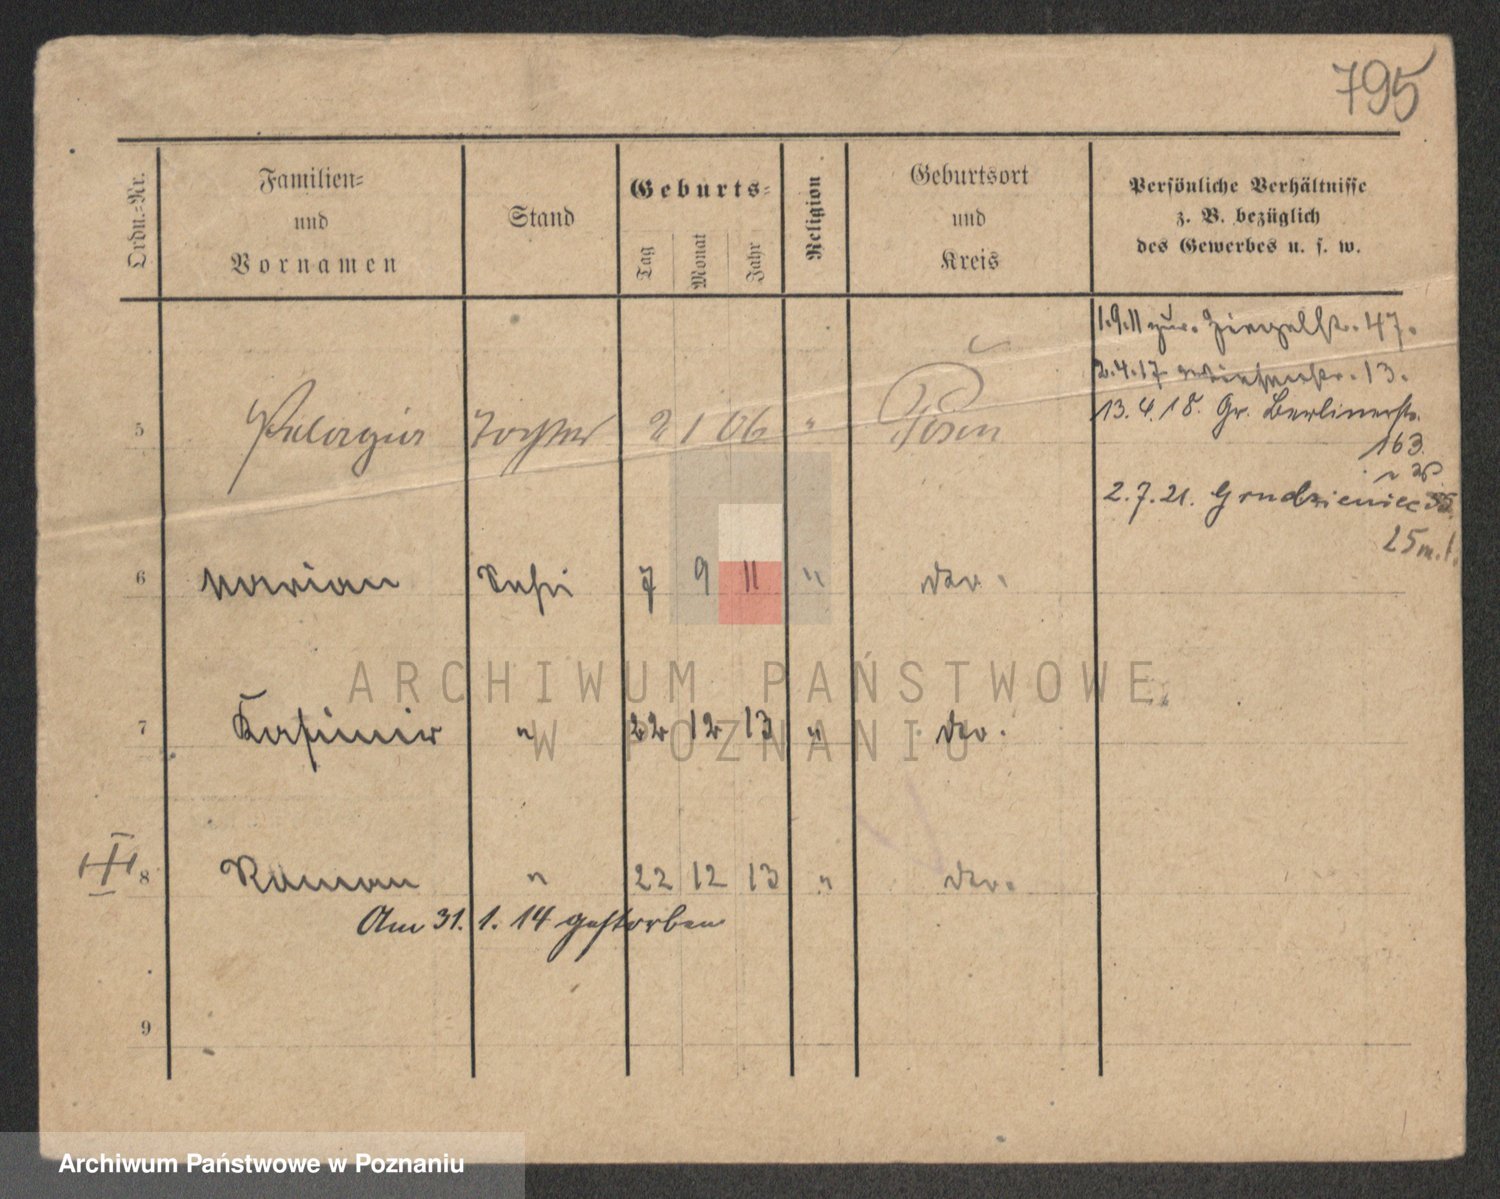 795
Ordn.-Nr.
Familien-
und
Vornamen
Stand
Geburts-
Tag
Monat
Jahr
Religion
Geburtsort
und
Kreis
Persönliche Verhältnisse
z. B. bezüglich
des Gewerbes u. s. w.
1.9.11 Ziegelstr. 47.
2.4.17 13.
13.4.18. Gr. Berlinerstr.
163.
5 Pelagia Tochter 2 1 06 " Posen
2.7.21. Grudzieniec
25
6 Marian Sohn 7 9 11 " das.
ARCHIWUM PAŃSTWOWE
W POZNANIU
7 Kasimir " 22 12 13 " das.
8 Roman " 22 12 13 " das.
Am 31.1.14 gestorben
9
Archiwum Państwowe w Poznaniu